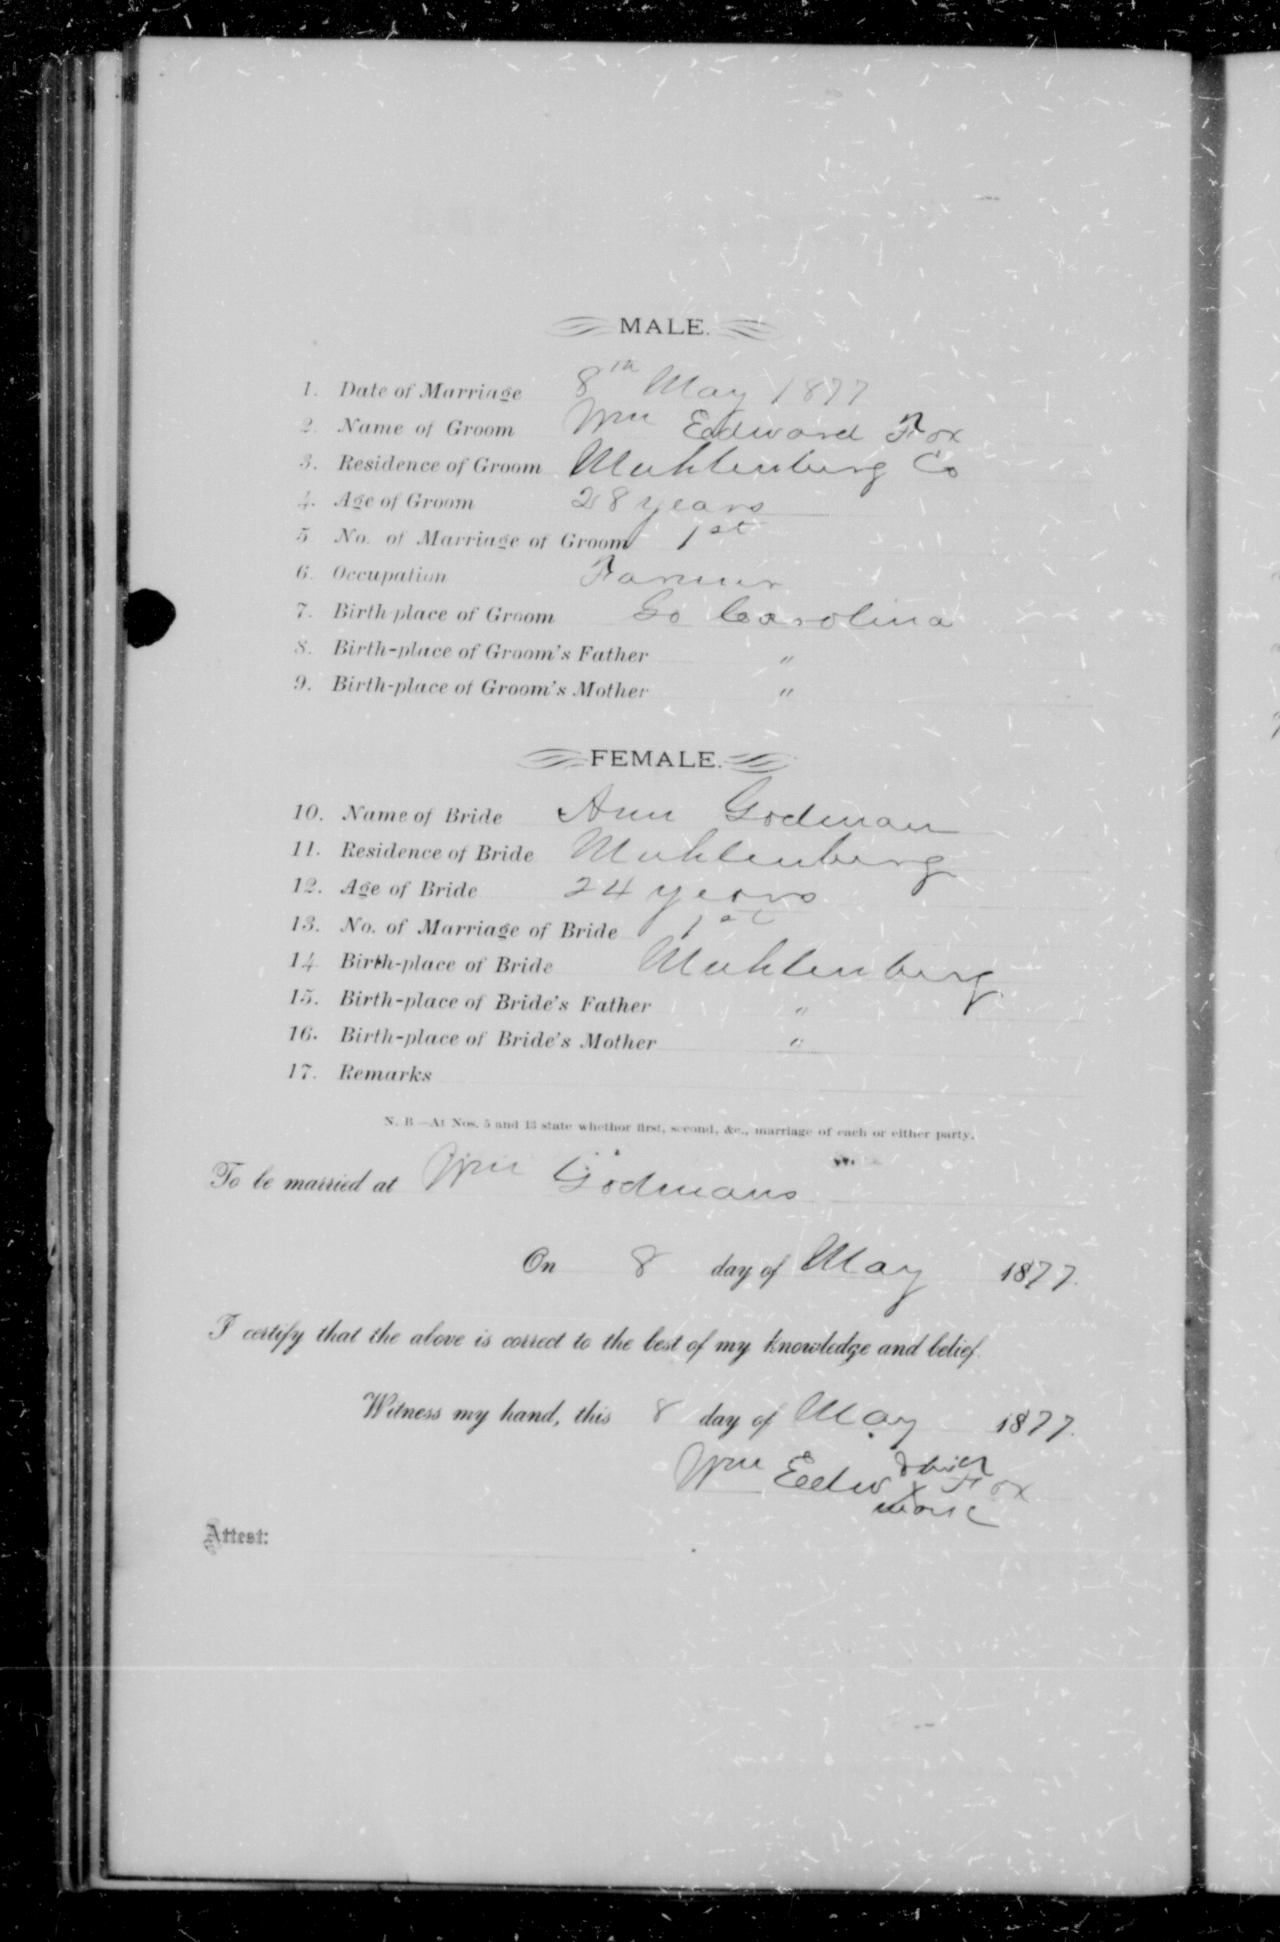 MALE.
1. Date of Marriage 8th May 1877
2. Name of Groom Wm Edward Fox
3. Residence of Groom Muhlenburg Co
4. Age of Groom 28 years
5 No. of Marriage of Groom 1st
6. Occupation Farmer
7. Birth place of Groom So Carolina
8. Birth-place of Groom's Father "
9. Birth-place of Groom's Mother "
FEMALE.
10. Name of Bride Ann Godman
11. Residence of Bride Muhlenberg
12. Age of Bride 24 years
13. No. of Marriage of Bride 1st
14 Birth-place of Bride Muhlenberg
15. Birth-place of Bride's Father "
16. Birth-place of Bride's Mother "
17. Remarks
N. B—At Nos. 5 and 13 state whethor first, second, &c., marriage of each or either party.
To be married at Wm Godmans
On 8 day of May 1877.
I certify that the above is correct to the best of my knowledge and belief.
Witness my hand, this 8 day of May 1877.
Wm Edw X Fox
mark
Attest: